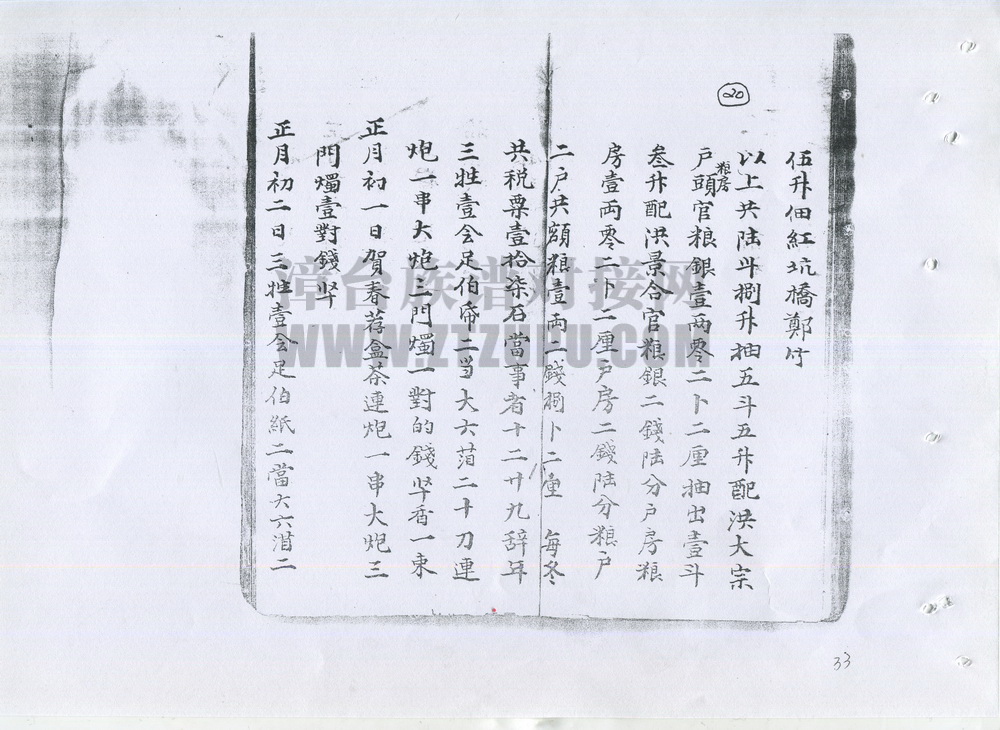 20
伍升佃紅坑橋鄭竹
以上共陸斗捌升抽五斗五升配洪大宗
戶頭粮房官粮銀壹両零二卜二厘抽出壹斗
叁升配洪景合官粮銀二錢陸分戶房粮
房壹両零二卜二厘戶房二錢陸分粮戶
二戶共額粮壹両二錢捌卜二厘 每冬
共税粟壹拾柒石當事者十二廿九辞年
三牲壹会足伯帋二当大六萡二十刀連
炮一串大炮三門燭一對的錢香一束
正月初一日賀春荐盒茶連炮一串大炮三
門燭壹對錢
正月初二日三牲壹会足伯紙二當大六萡二
漳台族谱对接网
WWW.ZTZUPU.COM
33